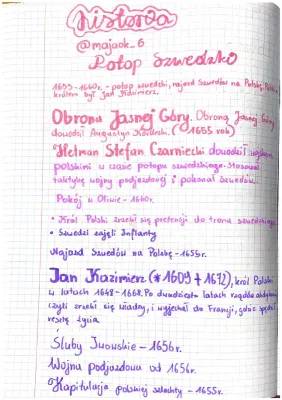 historia
@majaok_6
Potop Szwedzki
1655-1660r. - potop szwedzki, najazd Szwedów na Polskę, Polski
królem był Jan Kazimierz.
Obrona Jasnej Góry. Obroną Jasnej Góry
dowodził Augustyn Kordecki. (1655 rok)
Hetman Stefan Czarniecki dowodził wojskami
polskimi w czasie potopu szwedzkiego. Stosował
taktykę wojny podjazdowej i pokonał Szwedów.
Pokój w Oliwie - 1660r.
• Król Polski zrzekł się pretensji do tronu szwedzkiego.
• Szwedzi zajęli Inflanty
Najazd Szwedów na Polskę - 1655r.
Jan Kazimierz (*1609 †1672), król Polski
w latach 1648-1668. Po dwudziestu latach rządów abdykował
czyli zrzekł się władzy, i wyjechał do Francji, gdzie spędził
resztę życia
Śluby Lwowskie - 1656r.
Wojna podjazdowa od 1656r.
Kapitulacja polskiej szlachty - 1655r.